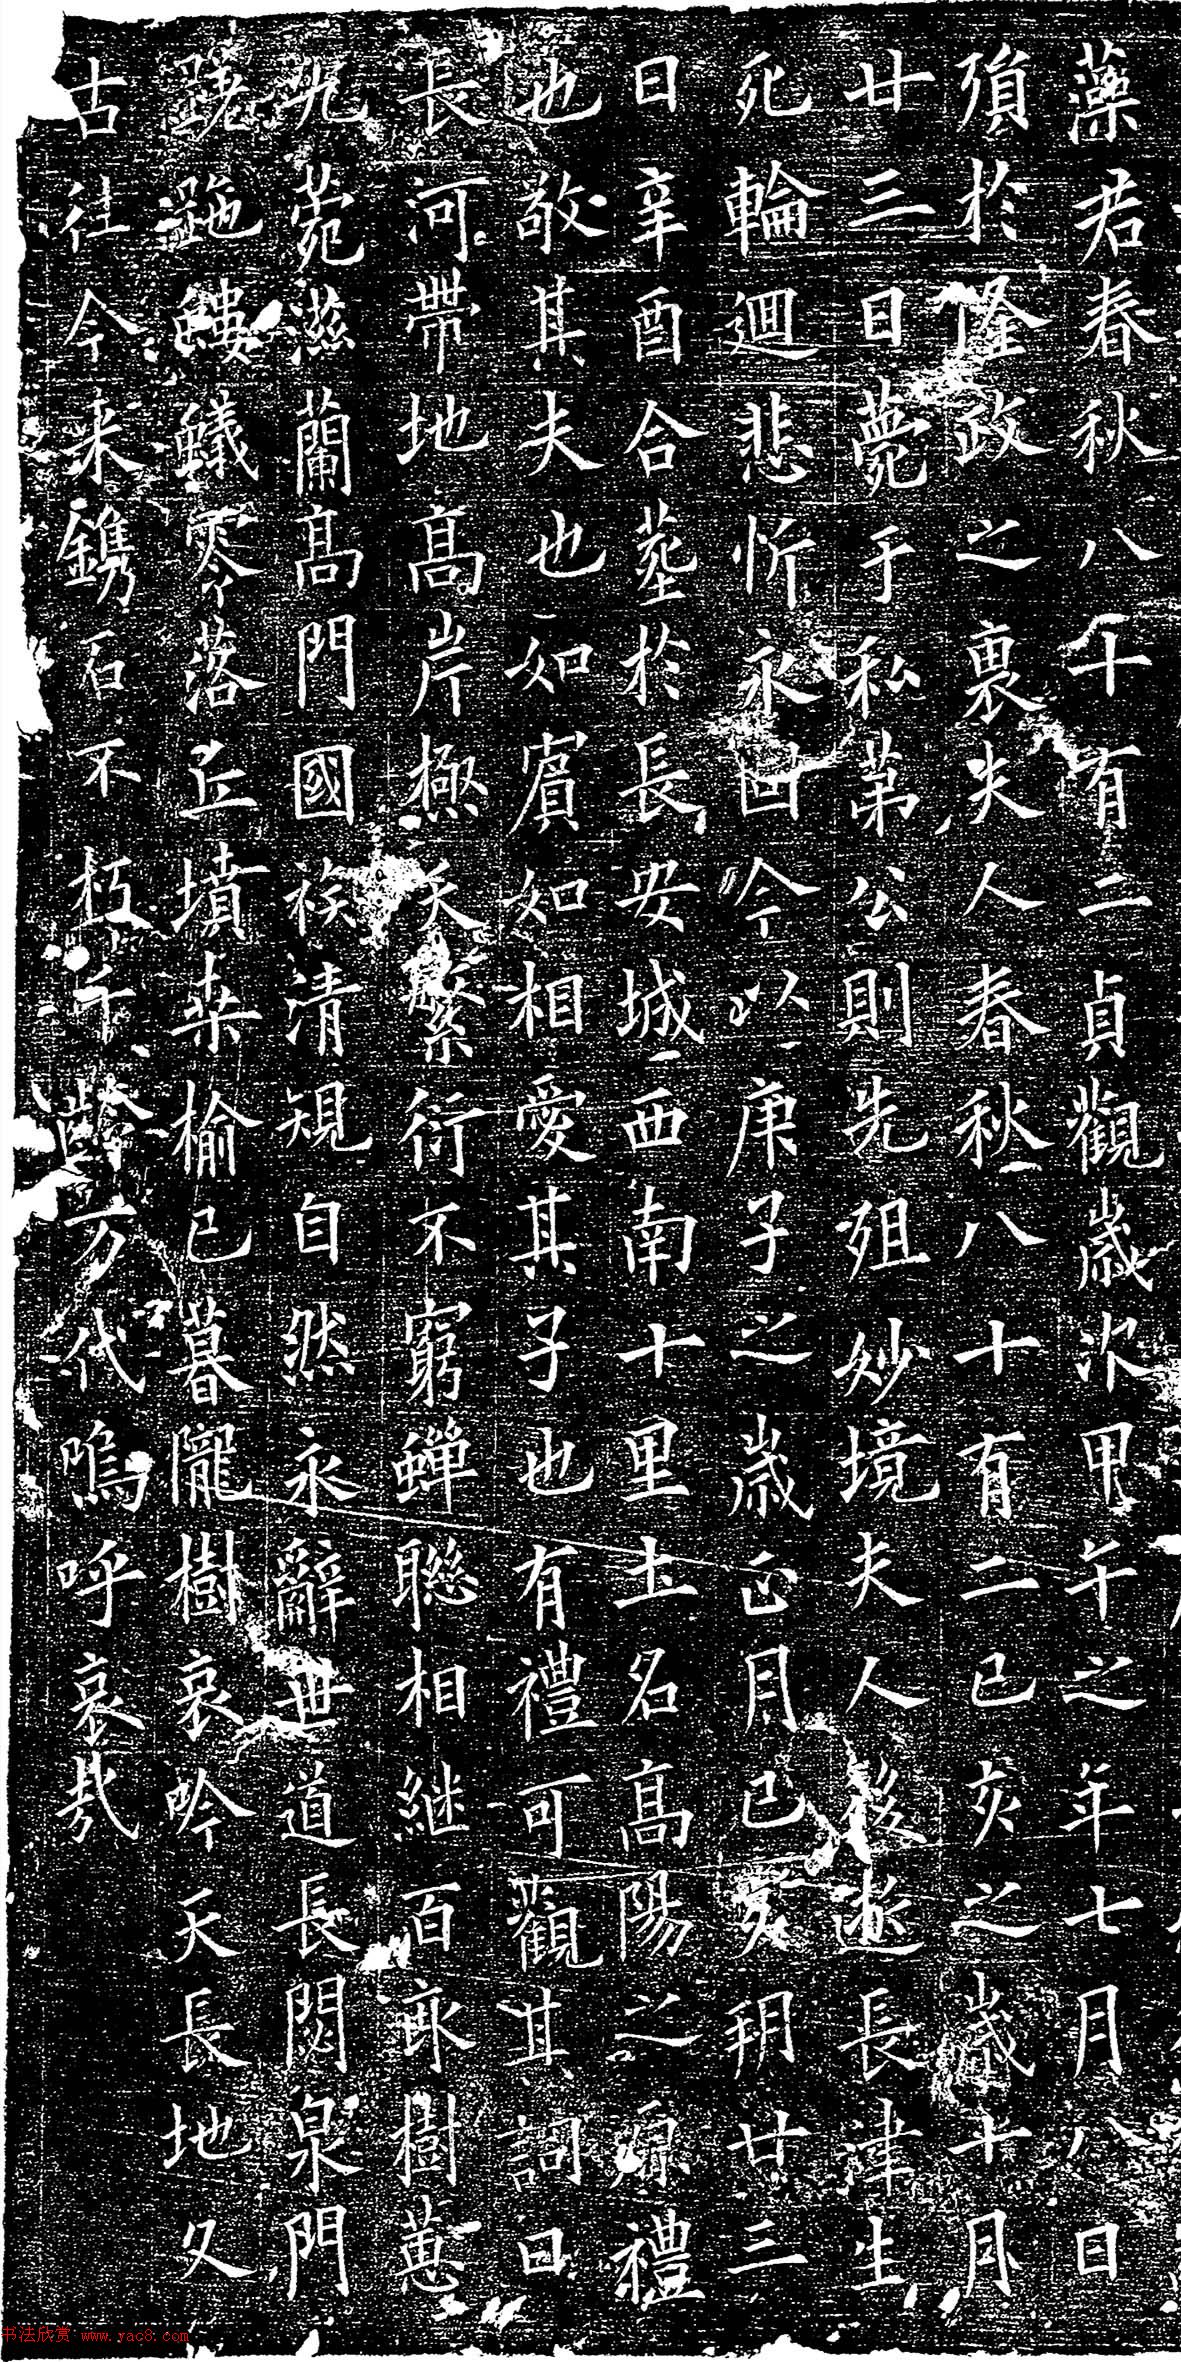 藻君春秋八十有二貞觀歲次甲午之年七月八日
殞於隆政之裏夫人春秋八十有二已亥之歲十月
廿三日薨于私第公則先殂妙境夫人後逝長津生
死輪迴悲忻永畢今以庚子之歲正月己亥朔廿三
日辛酉合塟於長安城西南十里土名高陽之原禮
也敬其夫也如賓如相愛其子也有禮可觀其詞曰
長河帶地高岸極天繁衍不窮蟬聮相継百郡樹蕙
九菀滋蘭高門國族清規自然永辭世道長閟泉門
跣跑螻蟻零落丘墳桒榆已暮隴樹哀吟天長地久
古往今来鐫石不朽千齡万代嗚呼哀哉
书法欣赏 www.yac8.com